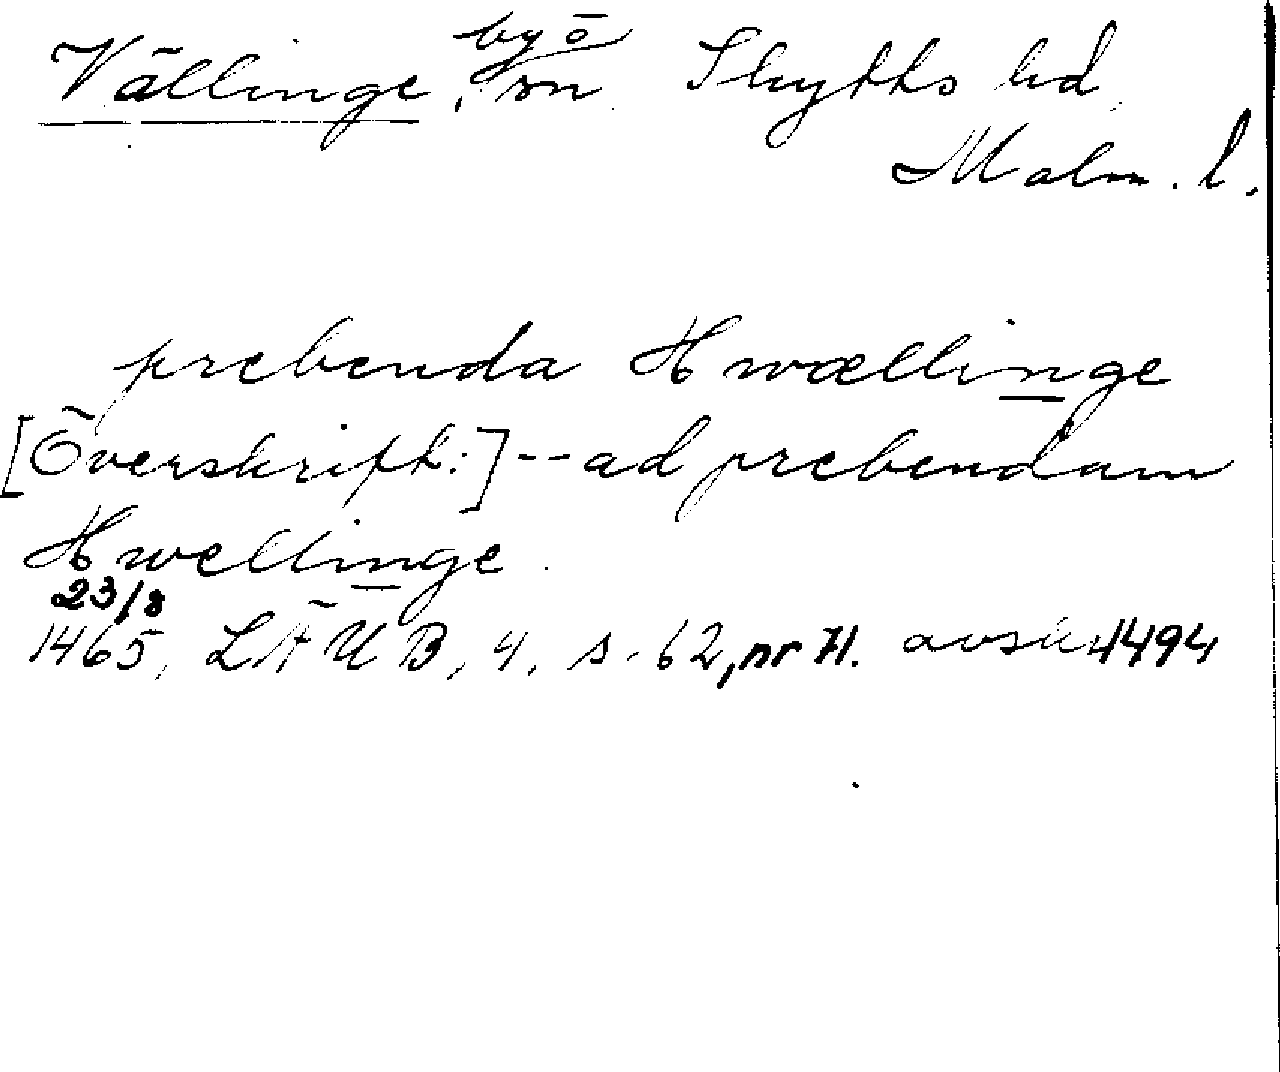 Vällinge, by o sn Skytts hd
Malm. l.
prebenda Hwællinge
[Överskrift:] -- ad prebendam
Hwellinge.
23/8
1465, LÄUB, 4, s. 62, nr 71. avskr 1494